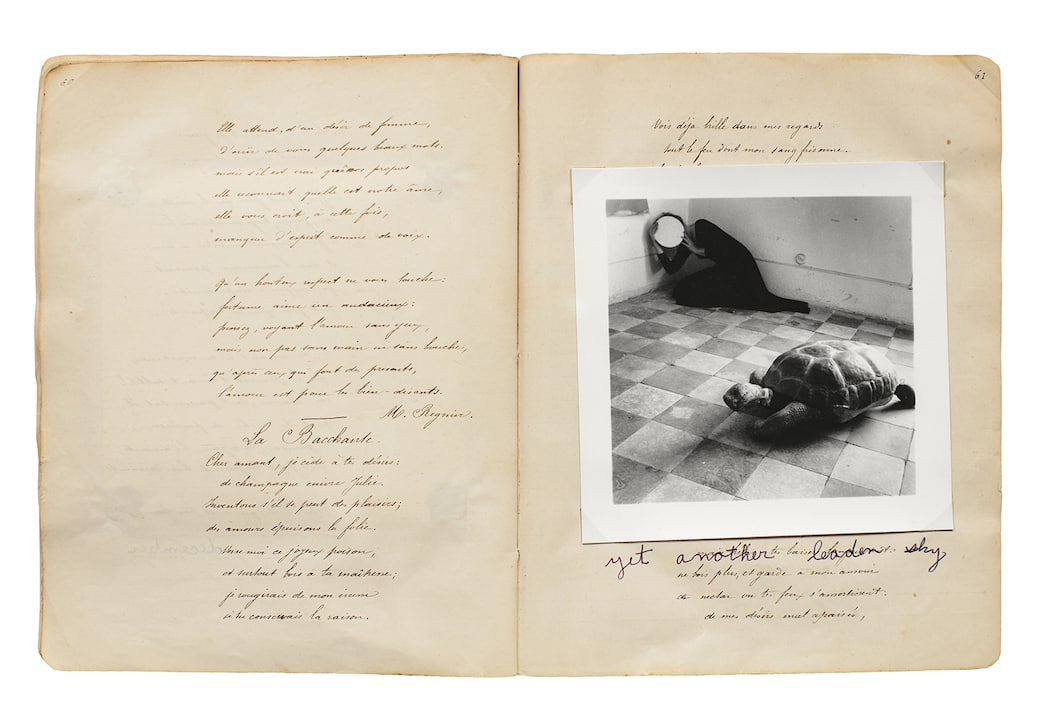 60
Elle attend, d'un désir de femme,
d'ouïr de vous quelques beaux mots.
mais s'il est vrai qu'à nos propos
elle reconnait quelle est notre âme,
elle vous croit, à cette fois,
manquer d'esprit comme de voix.
Qu'un honteux respect ne vous touche:
fortune aime un audacieux:
pensez, voyant l'amour sans yeux,
mais non pas sans main ni sans bouche,
qu'après ceux qui font des présents,
l'amour est pour les bien-disants.
M. Regnier.
La Bacchante
Cher amant, je cède à tes désirs:
de champagne enivre Julie.
Inventons s'il se peut des plaisirs;
des amours épuisons la folie.
Verse-moi ce joyeux poison,
et surtout bois à ta maîtresse;
je rougirais de mon ivresse
si tu conservais la raison.
61
Vois déjà brille dans mes regards
tout le feu dont mon sang frisonne.
yet another leaden sky
ne bois plus, et garde à mon
de nectar où tes feux s'amortissent.
de mes désirs mal apaisés,